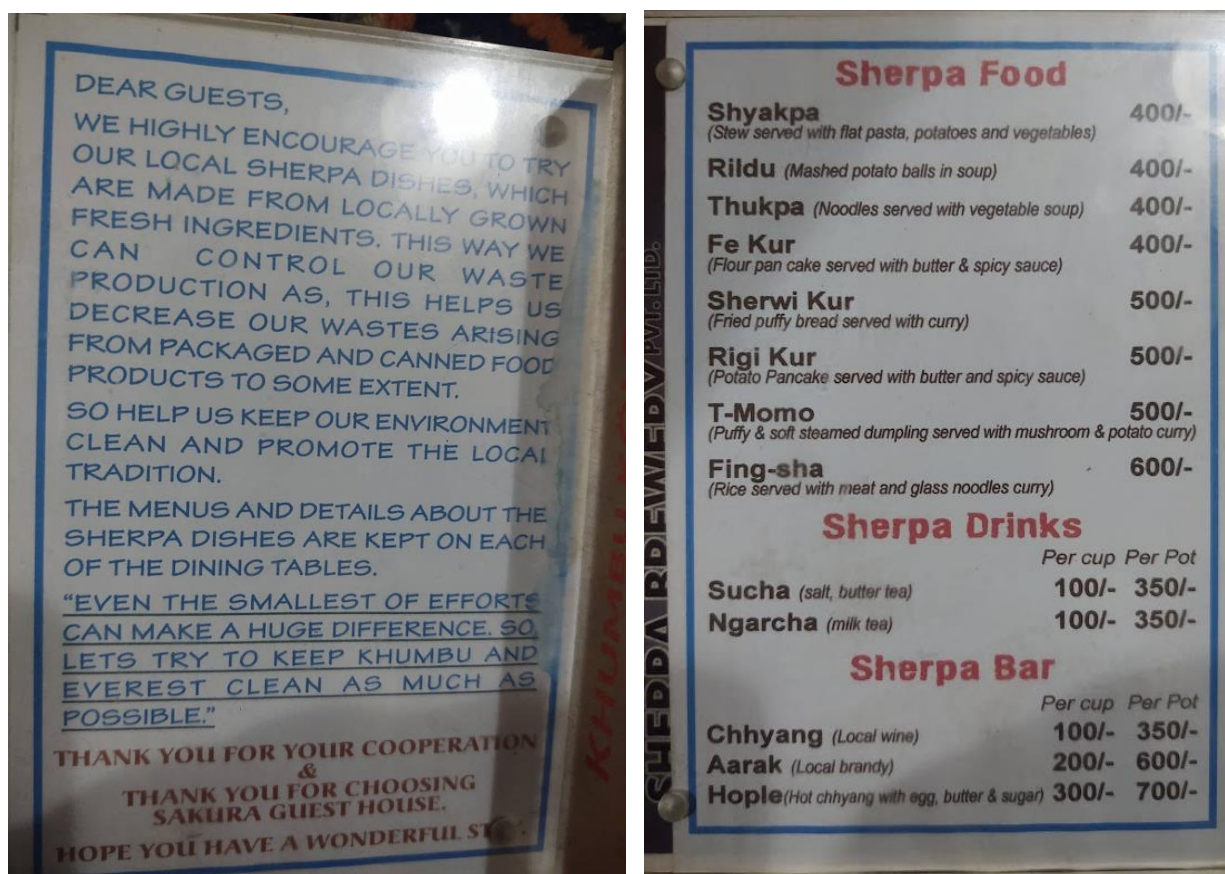 DEAR GUESTS,
WE HIGHLY ENCOURAGE YOU TO TRY
OUR LOCAL SHERPA DISHES, WHICH
ARE MADE FROM LOCALLY GROWN
FRESH INGREDIENTS. THIS WAY WE
CAN CONTROL OUR WASTE
PRODUCTION AS, THIS HELPS US
DECREASE OUR WASTES ARISING
FROM PACKAGED AND CANNED FOOD
PRODUCTS TO SOME EXTENT.
SO HELP US KEEP OUR ENVIRONMENT
CLEAN AND PROMOTE THE LOCAL
TRADITION.
THE MENUS AND DETAILS ABOUT THE
SHERPA DISHES ARE KEPT ON EACH
OF THE DINING TABLES.
“EVEN THE SMALLEST OF EFFORTS
CAN MAKE A HUGE DIFFERENCE. SO,
LETS TRY TO KEEP KHUMBU AND
EVEREST CLEAN AS MUCH AS
POSSIBLE.”
THANK YOU FOR YOUR COOPERATION
&
THANK YOU FOR CHOOSING
SAKURA GUEST HOUSE.
HOPE YOU HAVE A WONDERFUL
SHERPA BREWERY PVT. LTD.
Sherpa Food
Shyakpa 400/-
(Stew served with flat pasta, potatoes and vegetables)
Rildu (Mashed potato balls in soup) 400/-
Thukpa (Noodles served with vegetable soup) 400/-
Fe Kur 400/-
(Flour pan cake served with butter & spicy sauce)
Sherwi Kur 500/-
(Fried puffy bread served with curry)
Rigi Kur 500/-
(Potato Pancake served with butter and spicy sauce)
T-Momo 500/-
(Puffy & soft steamed dumpling served with mushroom & potato curry)
Fing-sha 600/-
(Rice served with meat and glass noodles curry)
Sherpa Drinks
Per cup Per Pot
Sucha (salt, butter tea) 100/- 350/-
Ngarcha (milk tea) 100/- 350/-
Sherpa Bar
Per cup Per Pot
Chhyang (Local wine) 100/- 350/-
Aarak (Local brandy) 200/- 600/-
Hople (Hot chhyang with egg, butter & sugar) 300/- 700/-